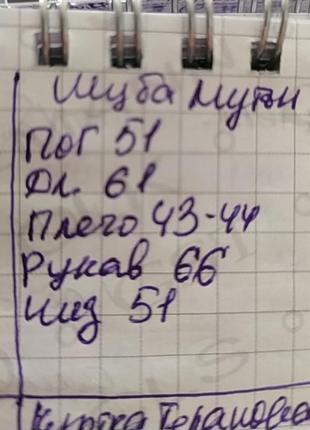 Шуба мутон
ПОГ 51
Дл. 61
Плечо 43-44
Рукав 66
Низ 51
Куртка